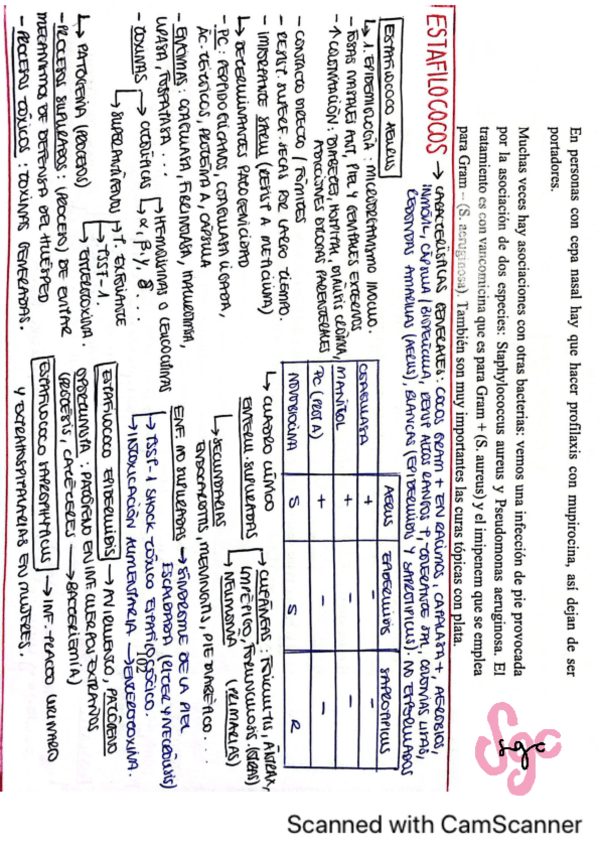 En personas con cepa nasal hay que hacer profilaxis con mupirocina, así dejan de ser
portadores.
Muchas veces hay asociaciones con otras bacterias: vemos una infección de pie provocada
por la asociación de dos especies: Staphylococcus aureus y Pseudomonas aeruginosa. El
tratamiento es con vancomicina que es para Gram + (S. aureus) y el imipenem que se emplea
para Gram – (S. aeruginosa). También son muy importantes las curas tópicas con plata.
sgc
ESTAFILOCOCOS → CARACTERÍSTICAS GENERALES: COCOS GRAM + EN RACIMOS, CATALASA +, AEROBIOS,
INMÓVIL, CÁPSULA / BIOPELÍCULA, RESIST ALTOS RANGOS Tª, TOLERANTE SAL, COLONIAS LISAS,
REDONDAS AMARILLAS (AERUS), BLANCAS (EPIDERMIDIS Y SAPROTIFICUS). NO ESPORULADOS
ESTAFILOCOCO AERUS
↳ 1. EPIDEMIOLOGÍA: MICROORGANISMO INOCUO.
- FOSAS NASALES ANT, PIEL Y GENITALES EXTERNOS
- ↑ COLONIZACIÓN: DIABETES, HOSPITAL, DIÁLISIS CRÓNICA,
ADICCIONES DROGAS PARENTERALES
- CONTACTO DIRECTO / FÓMITES
- RESIST. SUPERF. SECAS POR LARGO TIEMPO.
- IMPORTANTE SARM (RESIST A METICILINA)
↳ DETERMINANTES PATOGENICIDAD
- PC: PEPTIDOGLICANOS, COAGULASA LIGADA,
AC. TEICOICOS, PROTEINA A, CÁPSULA
- ENZIMAS: COAGULASA, FIBRINOLISINA, HIALURONIDASA,
LIPASA, FOSFATASA ...
- TOXINAS → CITOLÍTICAS → HEMOLISINAS O LEUCOCIDINAS
↳ α, β, γ, δ ...
↳ SUPERANTÍGENOS → T. EXFOLIANTE
→ TSST-1.
→ ENTEROTOXINA.
↳ PATOGENIA (PROCESO)
- PROCESOS SUPURADOS: (PROCESO) DE EVITAR
MECANISMOS DE DEFENSA DEL HUÉSPED
- PROCESOS TÓXICOS: TOXINAS GENERADAS.
AERUS EPIDERMIDIS SAPROTIFICUS
COAGULASA + - -
MANITOL + - -
PC (PROT A) + - -
NOVOBIOCINA S S R
↳ CUADRO CLÍNICO
ENFERM. SUPURADAS → CUTÁNEAS: FOLICULITIS, ÁNTRAX,
IMPÉTIGO, FORUNCULOSIS.
NEUMONIA (PRIMARIAS)
↳ SECUNDARIAS
ENDOCARDITIS, MENINGITIS, PIE DIABÉTICO ...
ENF. NO SUPURADAS → SÍNDROME DE LA PIEL
ESCALDADA (RITTER Y NECRÓLISIS)
↳ TSST-1 SHOCK TÓXICO ESTAFILOCÓCICO.
↳ INTOXICACIÓN ALIMENTARIA → ENTEROTOXINA.
ESTAFILOCOCO EPIDERMIDIS → AVIRULENTO, PATÓGENO
OPORTUNISTA: PATÓGENO EN INF CUERPOS EXTRAÑOS
(PRÓTESIS, CATÉTERES → BACTERIEMIA)
ESTAFILOCOCO SAPROPHYTICUS → INF. TRACTO URINARIO
Y EXTRAHOSPITALARIAS EN MUJERES.
Scanned with CamScanner